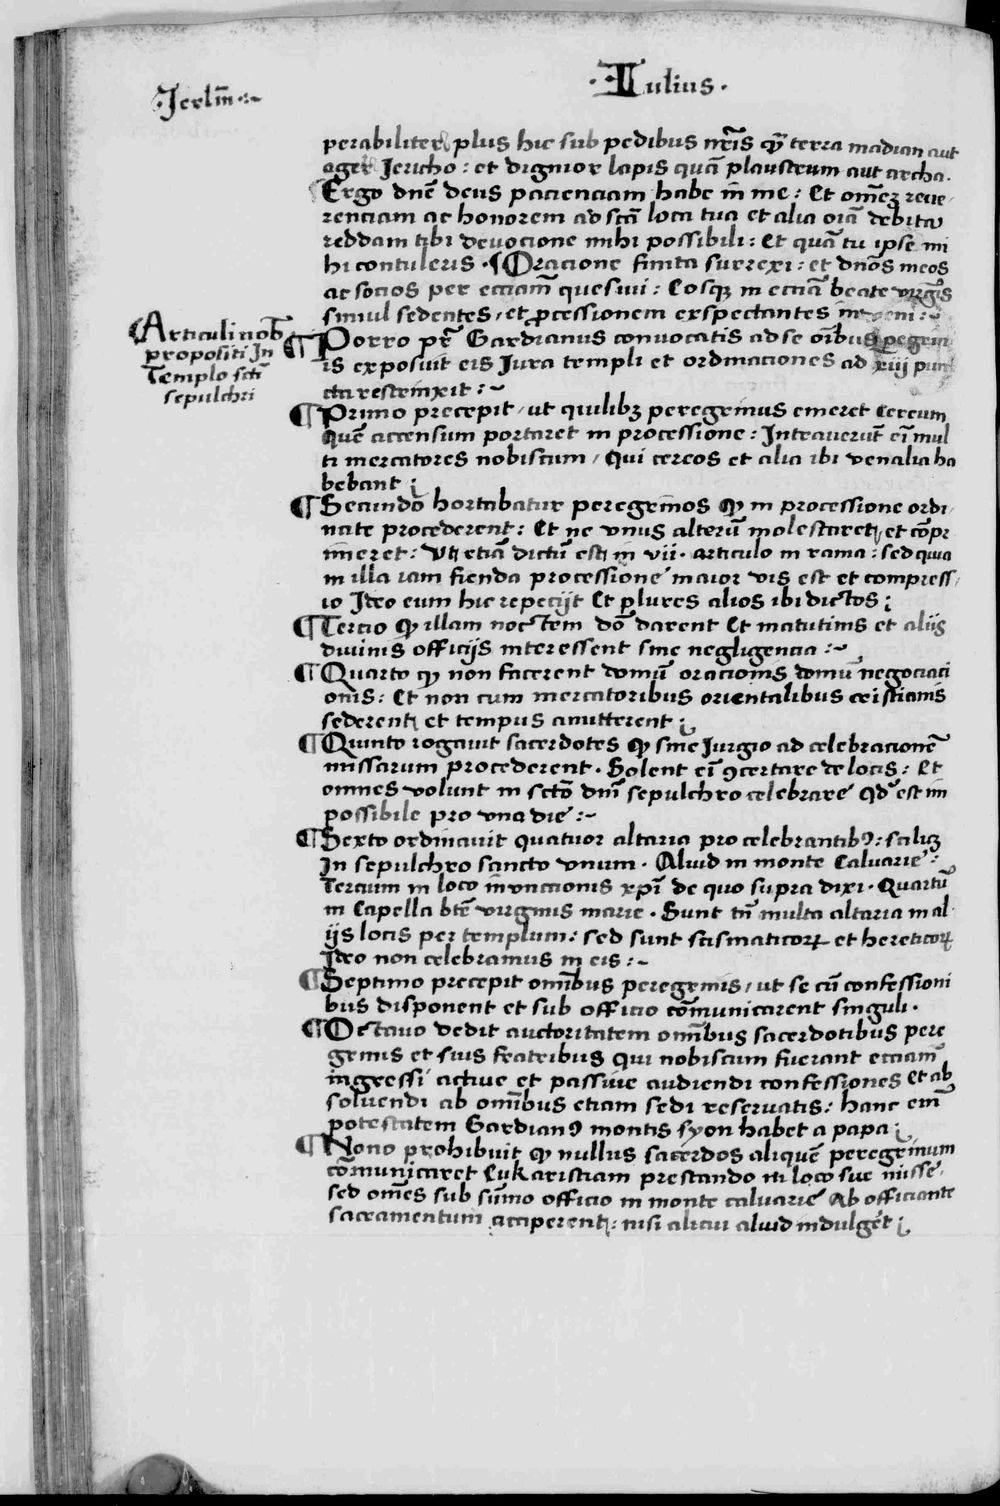 ·Jerlm̄·:~
·Iulius·
perabiliter plus hic sub pedibus nr̄is qͥ terra madian aut
ager Jericho: et dignior lapis quā plaustrum aut archa.
Ergo dnē deus pacienciam habe in me: Et om̄eʒ reue
renciam ac honorem ad scā loca tua et alia oīa debita
reddam tibi deuocione mihi possibili: Et quā tu ipse mi
hi contuleris · ¶ Oracione finita surrexi: et dnōs meos
ac socios per ecciam̄ quesiui: Eosqʒ in ecciā beate virgīs
simul sedentes, et ꝓcessionem exspectantes inveni:~
¶ Articuli nob̄
propositi Jn
Templo scti
sepulchri
¶ Porro pr̄ Gardianus conuocatis ad se oībus ꝑegrin
is exposuit eis Jura templi et ordinaciones ad xiij pun
cta restrinxit:~
¶ Primo precepit, ut quilibʒ peregrinus emeret Cereum
Quē accensum portaret in processione: Intrauerūt eī mul
ti mercatores nobiscum, Qui cereos et alia ibi venalia ha
bebant;
¶ Secundo hortabatur peregrinos qͥ in processione ordi
nate procederent: Et ne vnus alterū molestaret, et cōpr
imeret: Uti etiā dictū est in vii· articulo in rama: sed quia
in illa iam fienda processione maior vis est et compress
io Ideo eum hic repeciit Et plures alios ibi dictos;
¶ Tercio qͥ illam noctem dō darent Et matutinis et aliis
diuinis officijs interessent sine negligencia:~
¶ Quarto qͥ non facerent domū oracionis domū negociaci
onis: Et non cum mercatoribus orientalibus cristianis
sederent, et tempus amitterent;
¶ Quinto rogauit sacerdotes qͥ sine Jurgio ad celebracionē
missarum procederent. Solent eī ꝯcertare de locis: Et
omnes volunt in sctō dnī sepulchro celebrare qd̄ est im
possibile pro vna die:~
¶ Sexto ordinauit quatuor altaria pro celebrantibꝰ: scilicʒ
In sepulchro sancto vnum. Aliud in monte Caluarie:
Tercium in loco inunctionis xp̄i de quo supra dixi. Quartū
in Capella btē virginis marie. Sunt tn̄ multa altaria in al
ijs locis per templum: sed sunt scismaticoꝝ et hereticoꝝ
Ideo non celebramus in eis:~
¶ Septimo precepit om̄ibus peregrinis, ut se cū confessioni
bus disponent et sub officio cōmunicarent singuli.
¶ Octauo dedit auctoritatem om̄ibus sacerdotibus pere
grinis et suis fratribus qui nobiscum fuerant ecciam̄
ingressi active et passiue audiendi confessiones et ab
soluendi ab om̄ibus etiam sedi reseruatis: hanc enī
potestatem Gardianꝰ montis syon habet a papa;
¶ Nono prohibuit qͥ nullus sacerdos aliquē peregrinum
cōmunicaret Eukaristiam prestando in loco sue misse
sed om̄es sub sūmo officio in monte caluarie Ab officiante
sacramentum acciperent: nisi alicui aliud indulget;